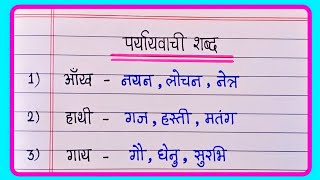 पर्यायवाची शब्द
1) आँख - नयन, लोचन, नेत्र
2) हाथी - गज, हस्ती, मतंग
3) गाय - गौ, धेनु, सुरभि